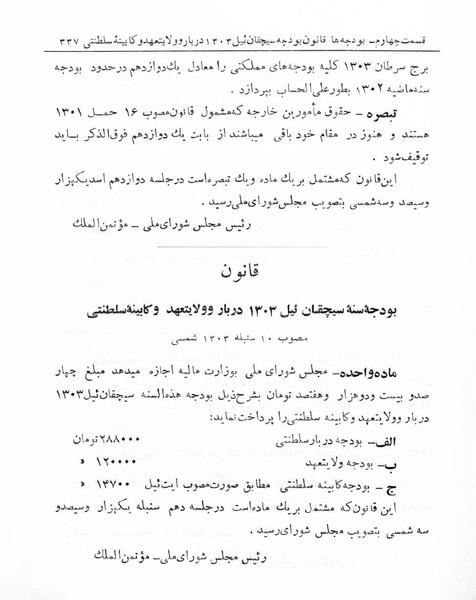 قسمت چهارم- بودجه ها قانون بودجه سیچقان ئیل ۱۳۰۳ دربار و ولایتعهد و کابینۀ سلطنتی ۳۳۷
برج سرطان ۱۳۰۳ کلیه بودجه‌های مملکتی را معادل یك دوازدهم در حدود بودجه
سنه ماضیه ۱۳۰۲ بطور علی الحساب بپردازد .
تبصره – حقوق مأمورین خارجه که مشمول قانون مصوب ۱۶ حمل ۱۳۰۱
هستند و هنوز در مقام خود باقی میباشند از بابت یك دوازدهم فوق الذکر باید
توقیف شود .
این قانون که مشتمل بریك ماده ویك تبصره است در جلسه دوازدهم اسد یکهزار
وسیصد وسه شمسی بتصویب مجلس شورای ملی رسید .
رئیس مجلس شورای ملی – مؤتمن الملك
قانون
بودجۀ سنۀ سیچقان ئیل ۱۳۰۳ دربار وولایتعهد وکابینۀ سلطنتی
مصوب ۱۰ سنبله ۱۳۰۳ شمسی
ماده واحده – مجلس شورای ملی بوزارت مالیه اجازه میدهد مبلغ چهار
صدو بیست ودوهزار وهفتصد تومان بشرح ذیل بودجه هذه السنه سیچقان ئیل ۱۳۰۳
دربار وولایتعهد وکابینه سلطنتی را پرداخت نماید:
الف – بودجه دربار سلطنتی ۲۸۸۰۰۰ تومان
ب – بودجه ولایتعهد ۱۲۰۰۰۰ »
ج – بودجه کابینه سلطنتی مطابق صورت مصوب ایت ئیل ۱۴۷۰۰ »
این قانون که مشتمل بریك ماده است در جلسه دهم سنبله یکهزار وسیصدو
سه شمسی بتصویب مجلس شورای ملی رسید .
رئیس مجلس شورای ملی – مؤتمن الملك